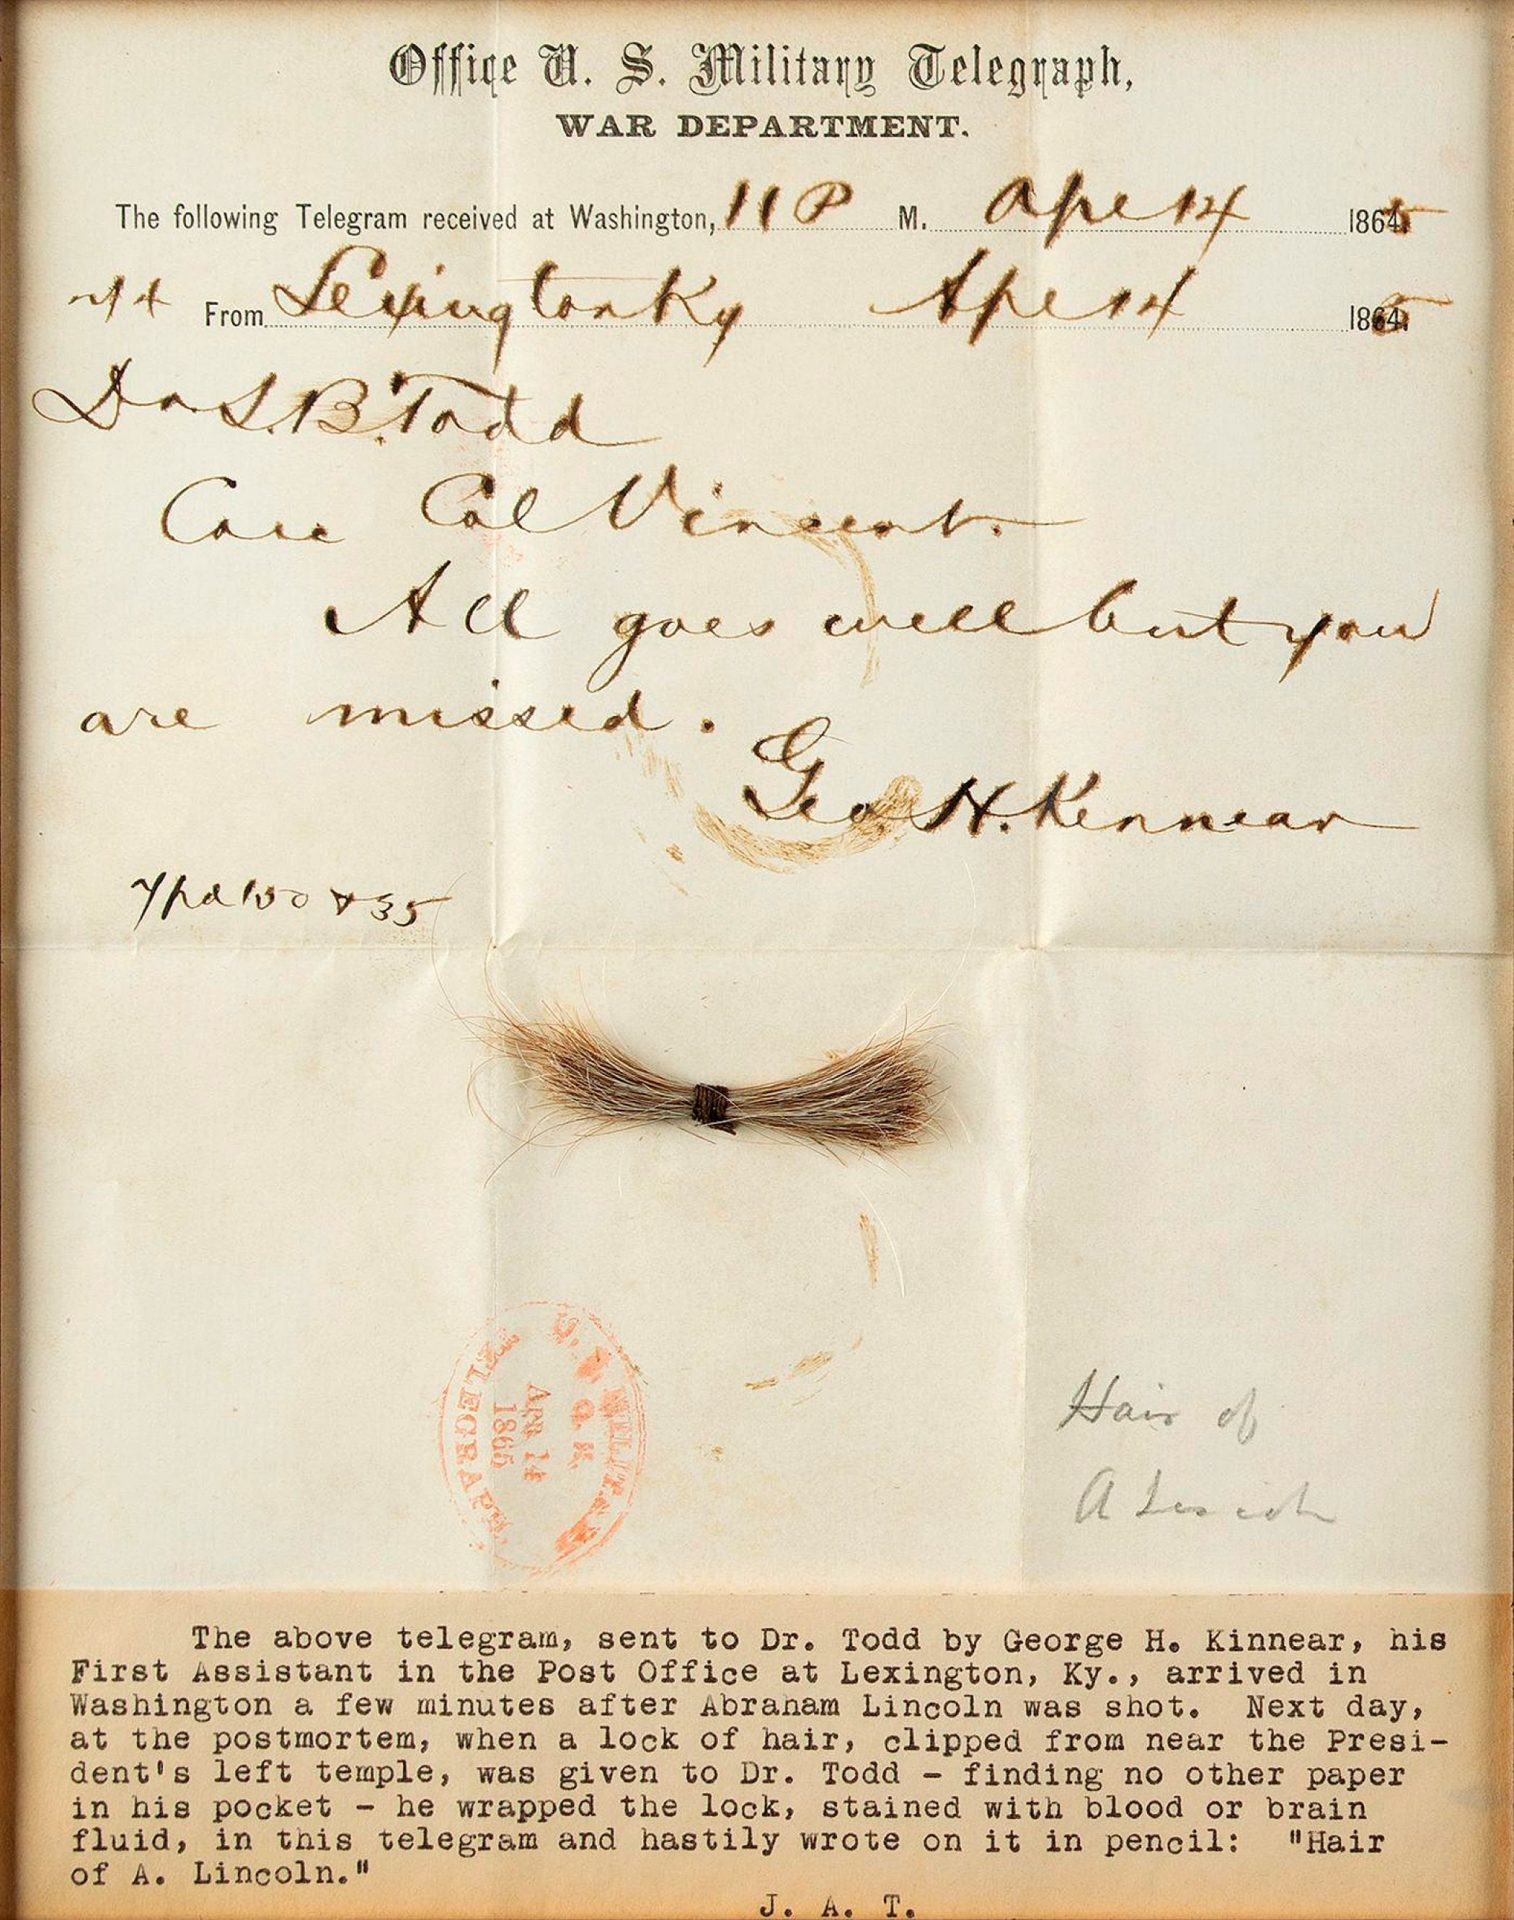 Office U. S. Military Telegraph,
WAR DEPARTMENT.
The following Telegram received at Washington, 11 P M. Apl 14 1865
From Lexington Ky Apl 14 1865
Dr L. B. Todd
Care Col Vincent.
All goes well but you
are missed.
Geo. H. Kennear
U. S. MILITARY
O. K.
APR 14
1865
TELEGRAPH
Hair of
A Lincoln
The above telegram, sent to Dr. Todd by George H. Kinnear, his
First Assistant in the Post Office at Lexington, Ky., arrived in
Washington a few minutes after Abraham Lincoln was shot. Next day,
at the postmortem, when a lock of hair, clipped from near the Presi-
dent's left temple, was given to Dr. Todd - finding no other paper
in his pocket - he wrapped the lock, stained with blood or brain
fluid, in this telegram and hastily wrote on it in pencil: "Hair
of A. Lincoln."
J. A. T.